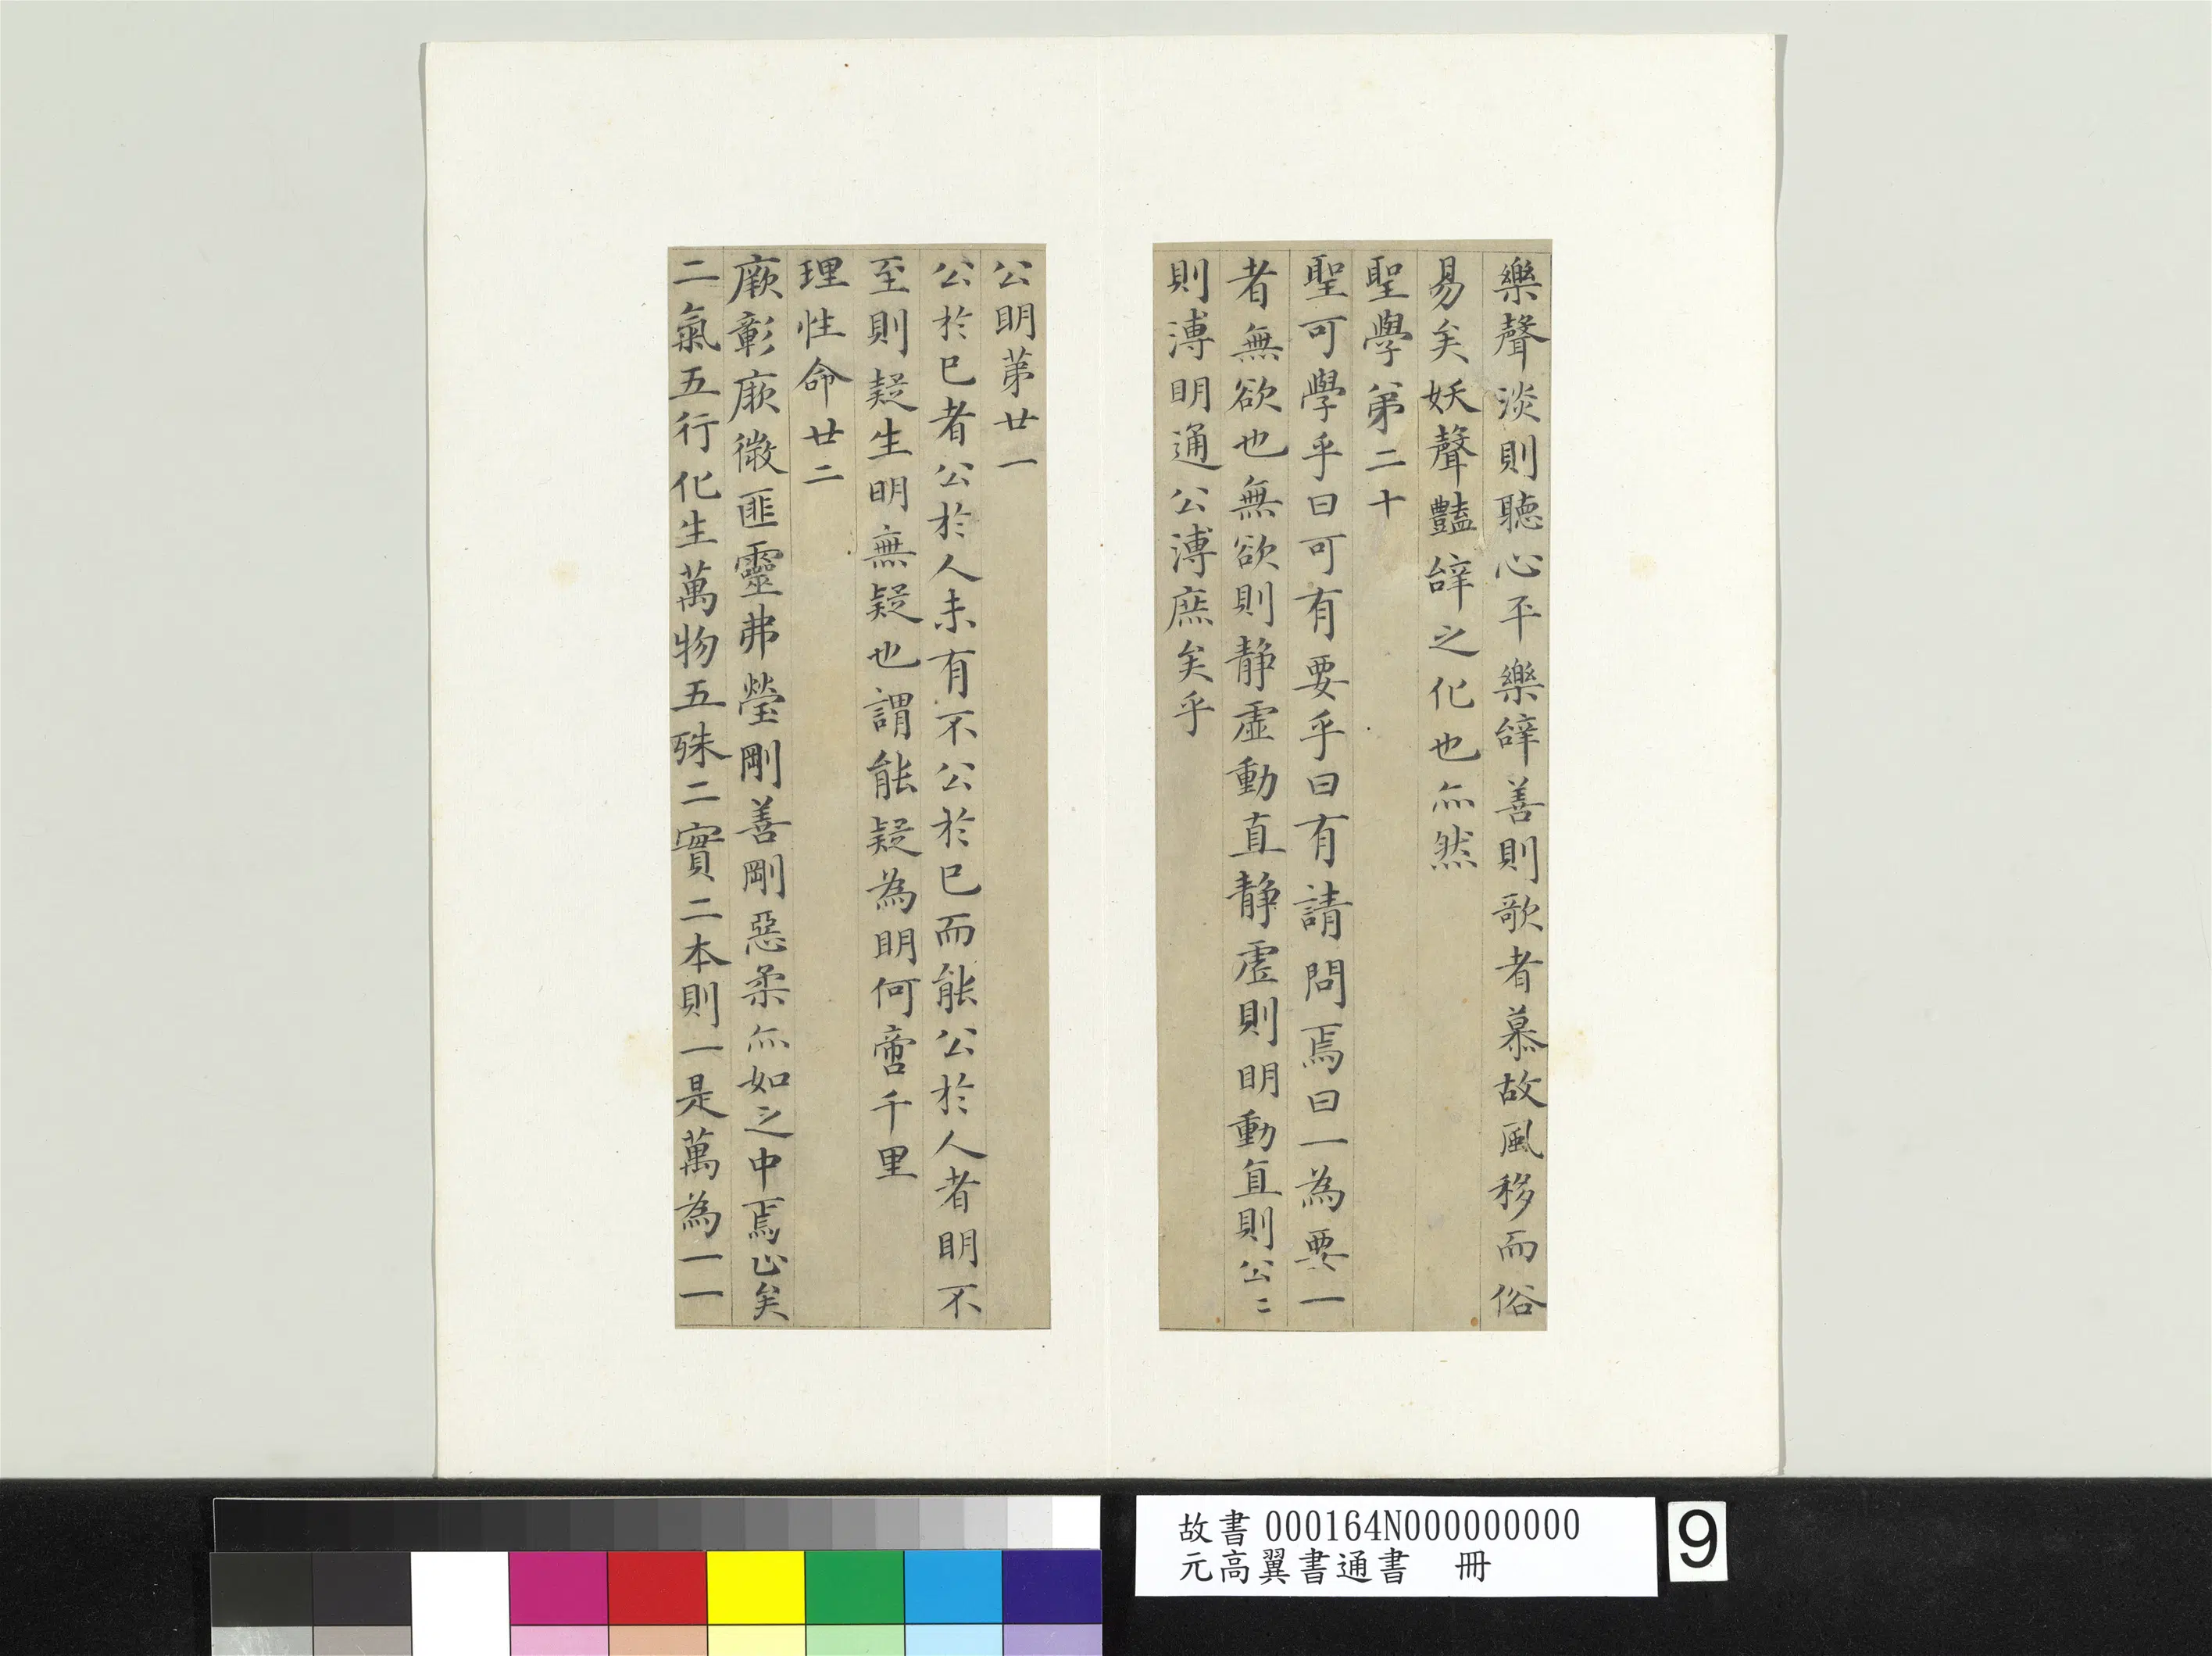 樂聲淡則聽心平樂辝善則歌者慕故風移而俗
易矣妖聲豔辝之化也亦然
聖學第二十
聖可學乎曰可有要乎曰有請問焉曰一為要一
者無欲也無欲則静虛動直静虛則明動直則公二
則溥明通公溥庶矣乎
公明第廿一
公於己者公於人未有不公於己而能公於人者明不
至則疑生明無疑也謂能疑為明何啻千里
理性命廿二
厥彰厥微匪靈弗瑩剛善剛惡柔亦如之中焉止矣
二氣五行化生萬物五殊二實二本則一是萬為一一
故書000164N000000000
元高翼書通書 冊
9